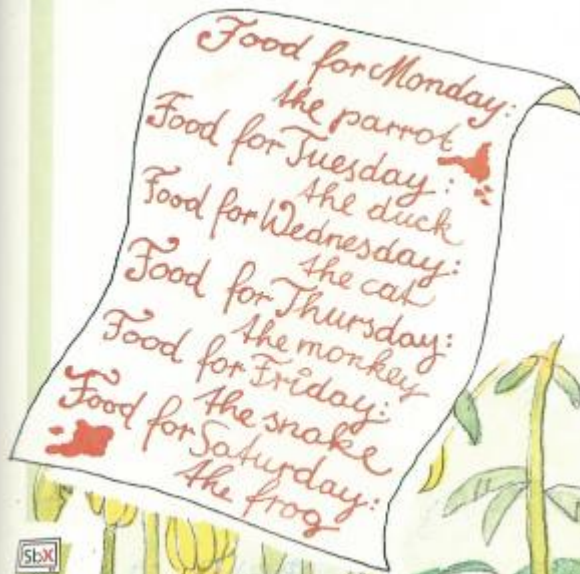 Food for Monday:
the parrot
Food for Tuesday:
the duck
Food for Wednesday:
the cat
Food for Thursday:
the monkey
Food for Friday:
the snake
Food for Saturday:
the frog
SbX